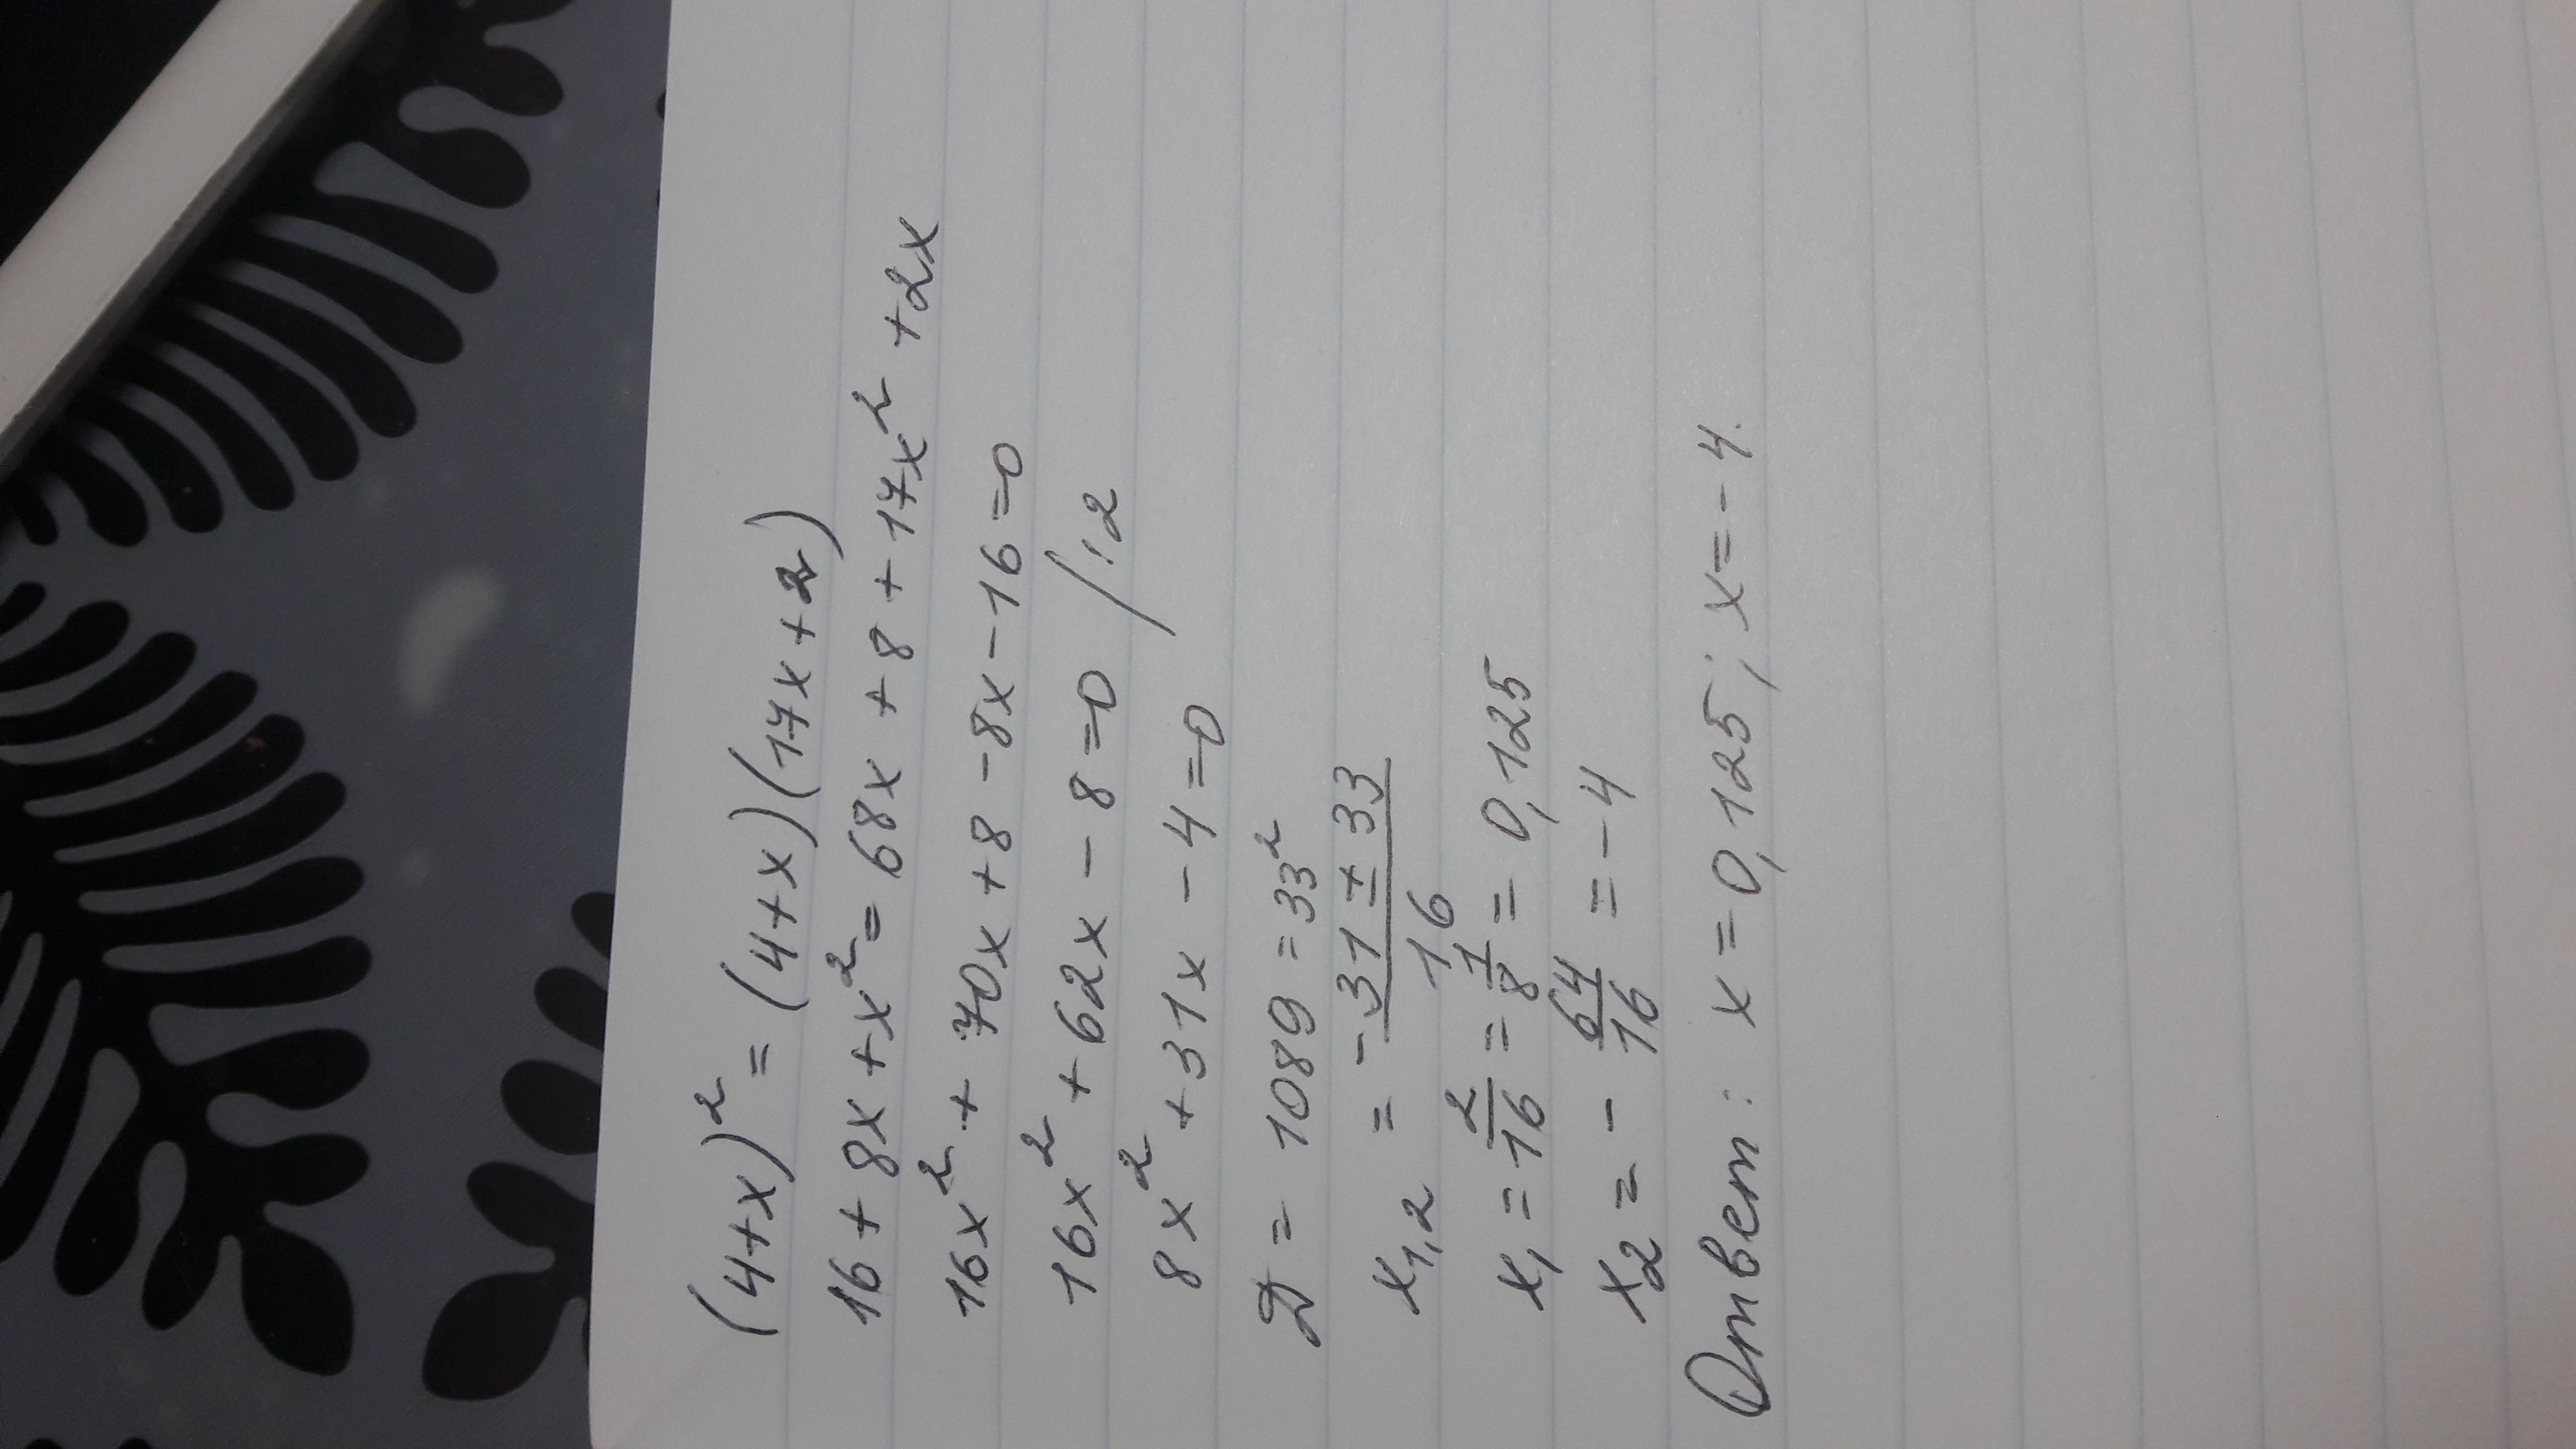 (4+x)² = (4+x)(17x+2)
16 + 8x + x² = 68x + 8 + 17x² + 2x
16x² + 70x + 8 - 8x - 16 = 0
16x² + 62x - 8 = 0 / :2
8x² + 31x - 4 = 0
D = 1089 = 33²
x₁,₂ = -31 ± 33 / 16
x₁ = 2/16 = 1/8 = 0,125
x₂ = - 64/16 = -4
Ответ: x = 0,125; x = -4.